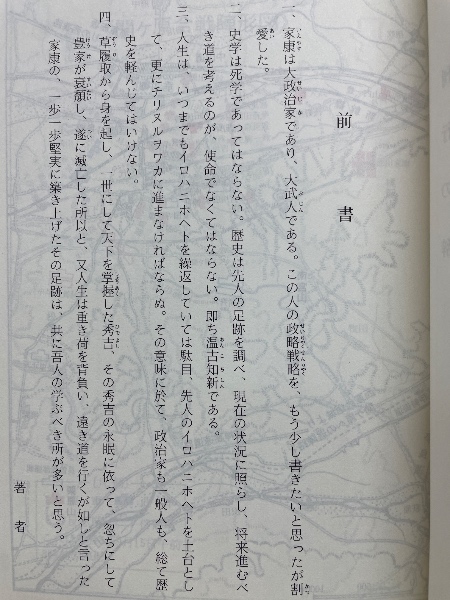 前書
一、家康は大政治家であり、大武人である。この人の政略戦略を、もう少し書きたいと思ったが割
愛した。
二、史学は死学であってはならない。歴史は先人の足跡を調べ、現在の状況に照らし、将来進むべ
き道を考えるのが、使命でなくてはならない。即ち温古知新である。
三、人生は、いつまでもイロハニホヘトを繰返していては駄目、先人のイロハニホヘトを土台とし
て、更にチリヌルヲワカに進まなければならぬ。その意味に於て、政治家も一般人も、総て歴
史を軽んじてはいけない。
四、草履取から身を起し、一世にして天下を掌握した秀吉、その秀吉の永眠に依って、忽ちにして
豊家が衰頽し、遂に滅亡した所以と、又人生は重き荷を背負い、遠き道を行くが如しと言った
家康の、一歩一歩堅実に築き上げたその足跡は、共に吾人の学ぶべき所が多いと思う。
著者